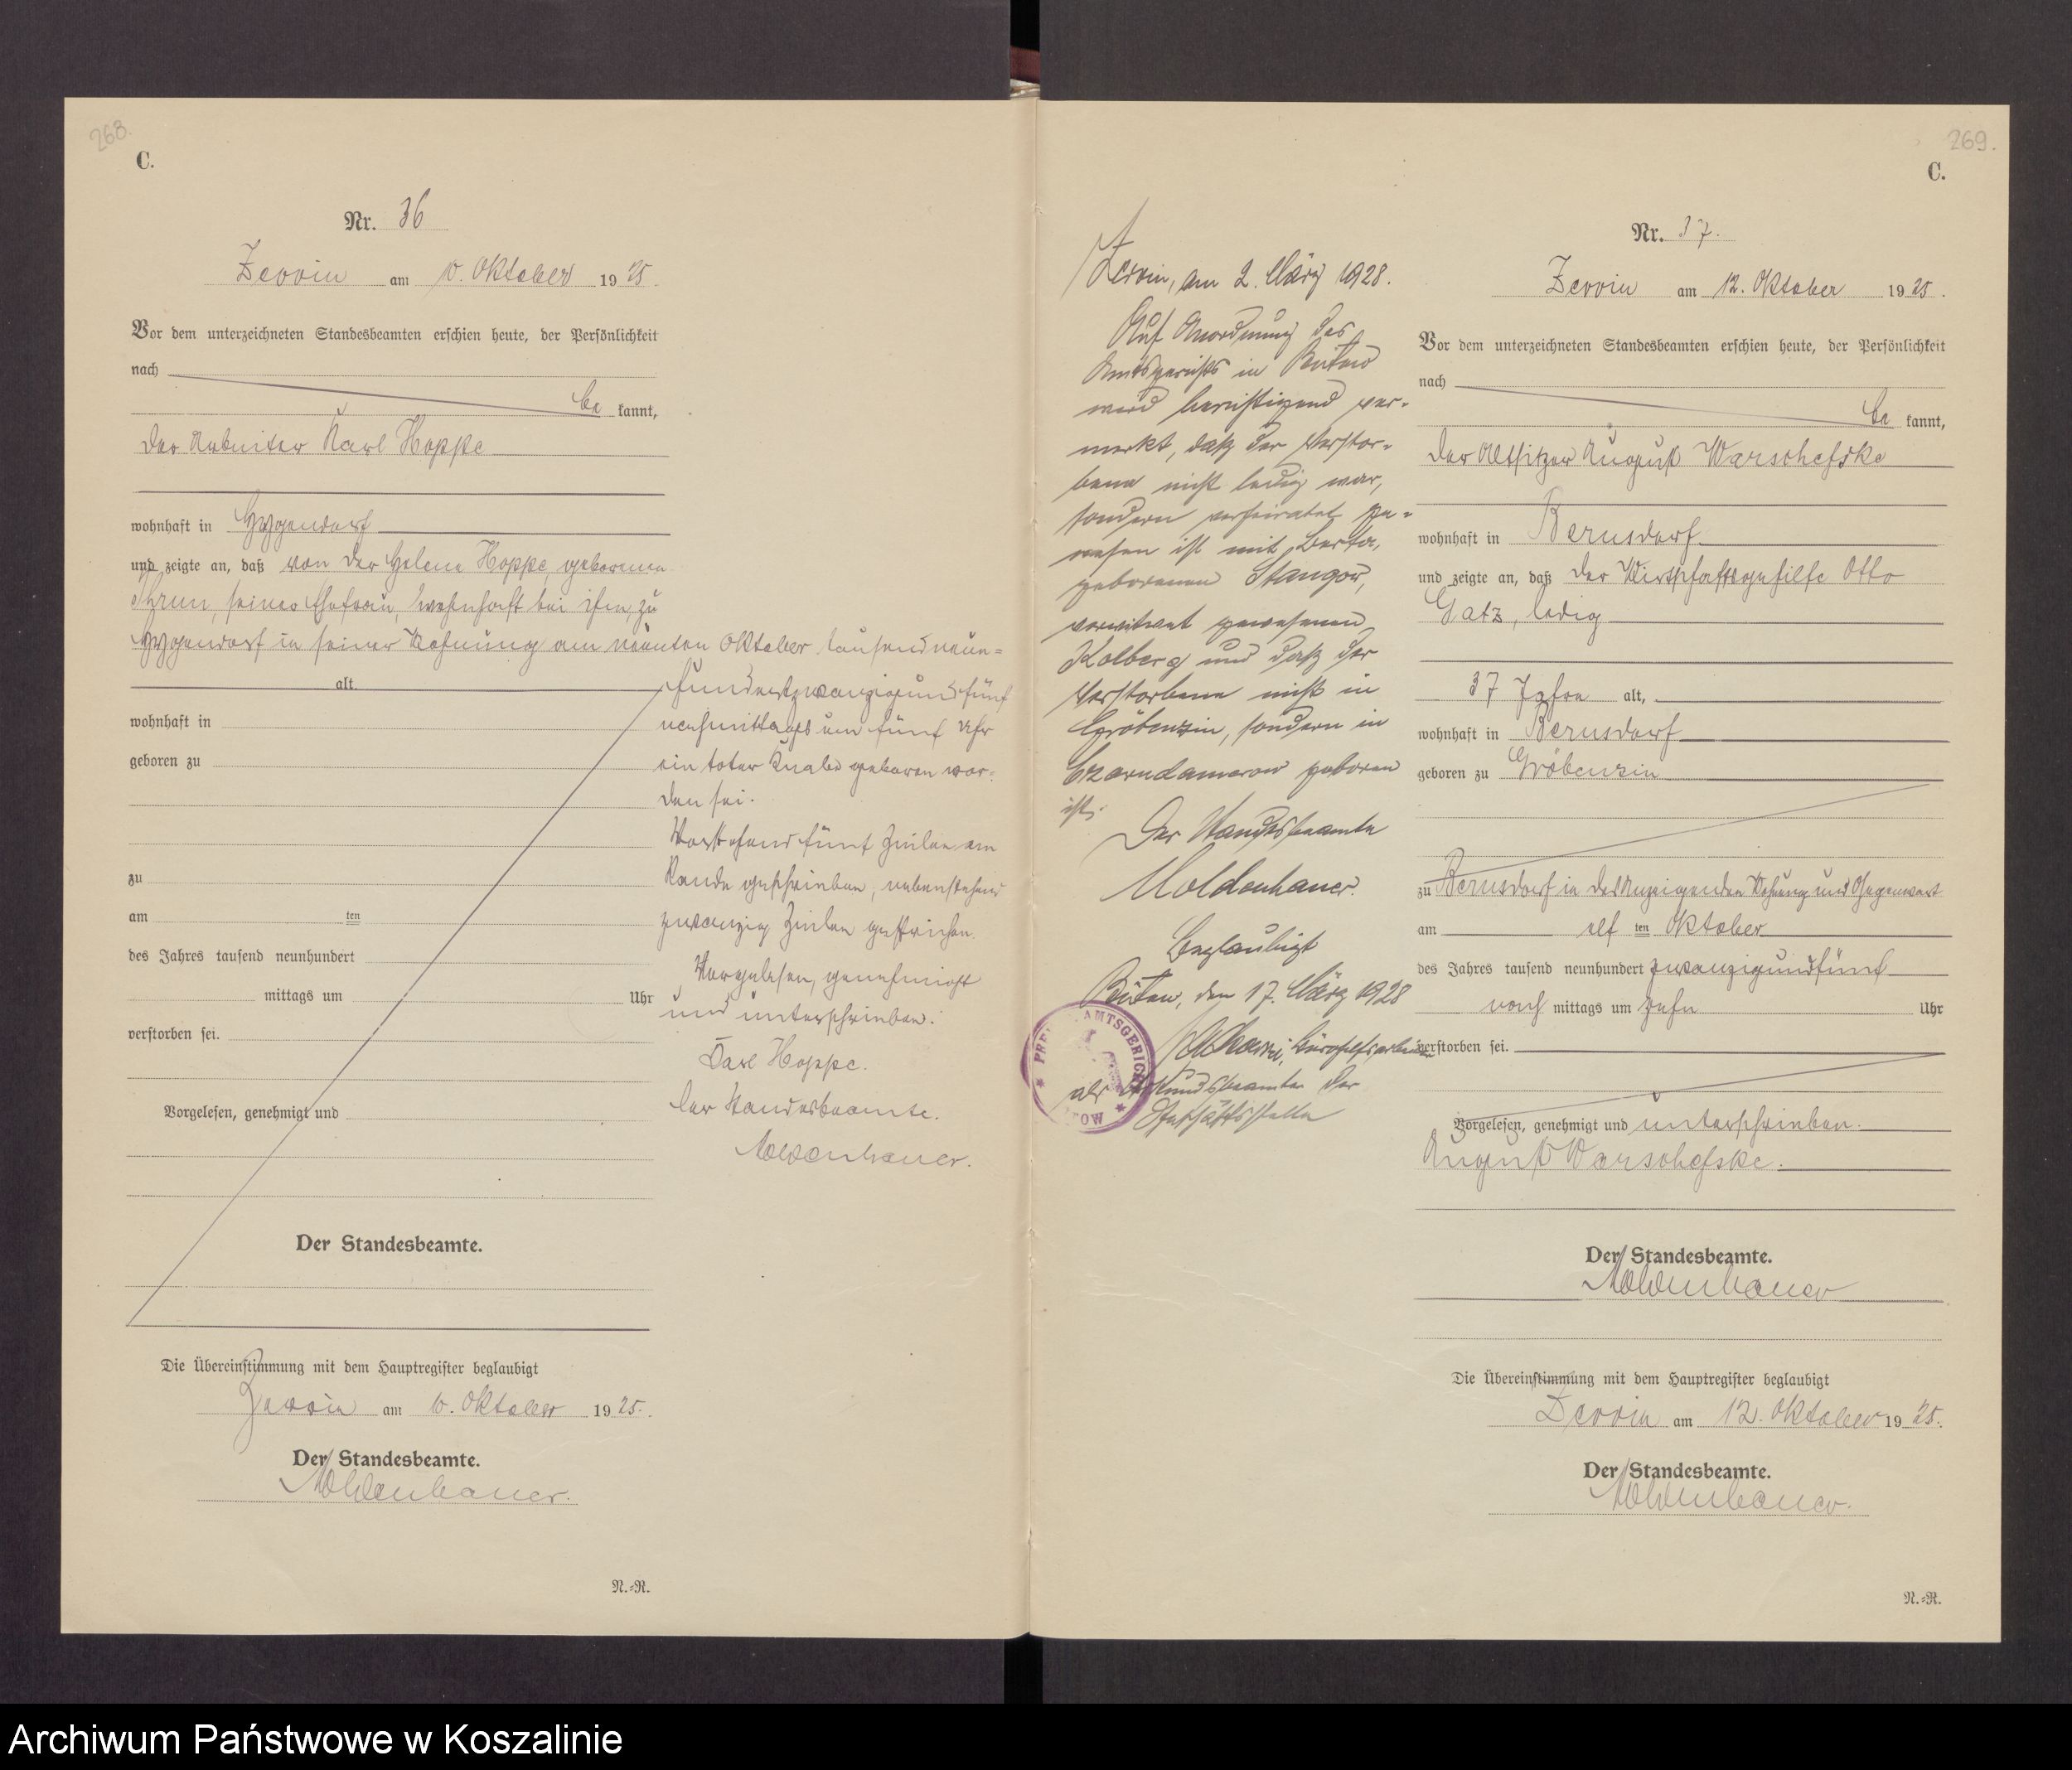 268.
C.
Nr. 36
Zerrin am 10. Oktober 1925.
Vor dem unterzeichneten Standesbeamten erschien heute, der Persönlichkeit
nach
be kannt,
der Arbeiter Karl Hoppe
wohnhaft in
und zeigte an, daß von der Helene Hoppe, geborenen
seiner Ehefrau, wohnhaft bei ihm, zu
in seiner Wohnung am neunten Oktober tausendneun=
alt
hundertzwanzigundfünf
wohnhaft in
nachmittags um fünf Uhr
geboren zu
ein toter Knabe geboren wor=
den sei.
Vorstehend fünf Zeilen am
Rande geschrieben, nebenstehend
zwanzig Zeilen gestrichen.
zu
am ten
des Jahres tausend neunhundert
mittags um Uhr
verstorben sei.
Vorgelesen, genehmigt
und unterschrieben.
Karl Hoppe.
Der Standesbeamte.
Moldenhauer.
Vorgelesen, genehmigt und
Der Standesbeamte.
Die Übereinstimmung mit dem Hauptregister beglaubigt
Zerrin am 10. Oktober 1925.
Der Standesbeamte.
Moldenhauer.
N.=R.
269.
C.
Zerrin, am 2. März 1928.
Auf Anordnung des
Amtsgerichts in Bütow
wird berichtigend ver=
merkt, daß der Verstor=
bene nicht ledig war,
sondern verheiratet ge=
wesen ist mit Berta,
geborenen Stangow,
verwitwet gewesenen
Kolberg und daß der
Verstorbene nicht in
Gröbenzin, sondern in
Czarndamerow geboren
ist.
Der Standesbeamte
Moldenhauer.
Beglaubigt
Bütow, den 17. März 1928
als Urkundsbeamter der
Geschäftsstelle
AMTSGERICHT
Nr. 37.
Zerrin am 12. Oktober 1925.
Vor dem unterzeichneten Standesbeamten erschien heute, der Persönlichkeit
nach
be kannt,
der Altsitzer August Warschefske
wohnhaft in Bernsdorf
und zeigte an, daß der Wirtschaftsgehilfe Otto
Gatz, ledig
37 Jahre alt,
wohnhaft in Bernsdorf
geboren zu Gröbenzin
zu Bernsdorf in des Anzeigenden Wohnung und Gegenwart
am elf ten Oktober
des Jahres tausend neunhundert zwanzigundfünf
nach mittags um zehn Uhr
verstorben sei.
Vorgelesen, genehmigt und unterschrieben.
August Warschefske.
Der Standesbeamte.
Moldenhauer
Die Übereinstimmung mit dem Hauptregister beglaubigt
Zerrin am 12. Oktober 1925.
Der Standesbeamte.
Moldenhauer.
N.=R.
Archiwum Państwowe w Koszalinie